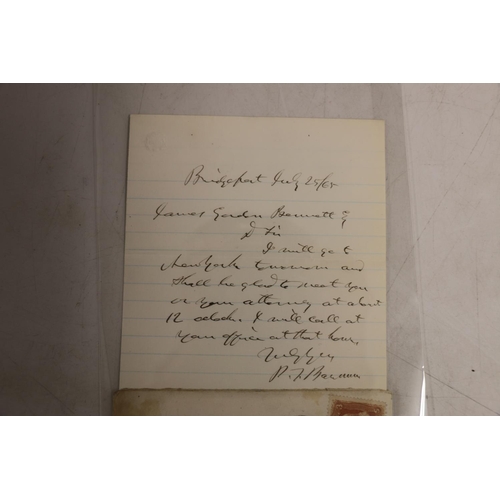 Bridgeport July 25/65
James Gordon Bennett Esq
D Sir
I will go to
New York tomorrow and
shall be glad to meet you
or your attorney at about
12 oclock. I will call at
your office at that hour.
Truly Yours
P. T. Barnum